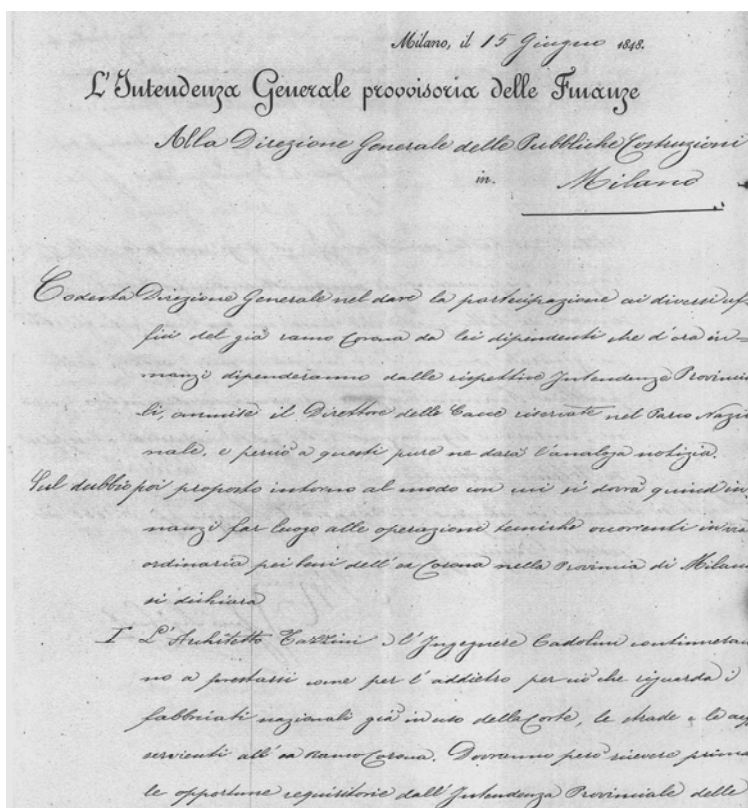 Milano, il 15 Giugno 1848.
L'Intendenza Generale provvisoria delle Finanze
Alla Direzione Generale delle Pubbliche Costruzioni
in Milano
Codesta Direzione Generale nel dare la partecipazione ai diversi uf
fici del già ramo Corona da lei dipendenti che d'ora in=
nanzi dipenderanno dalle rispettive Intendenze Provincia
li, ommise il Direttore delle Cacce riservate nel Parco Nazio
nale, e perciò a questi pure ne darà l'analoga notizia.
Sul dubbio poi proposto intorno al modo con cui si dovrà quind'in,
nanzi far luogo alle operazioni tecniche occorrenti in via
ordinaria pei beni dell'ex Corona nella Provincia di Milano
si dichiara
I. L'Architetto Tazzini e l'Ingegnere Cadolini continueran
no a prestarsi come per l'addietro per ciò che riguarda i
fabbricati nazionali già in uso della Corte, le strade e le acq
servienti all'ex Ramo Corona. Dovranno però ricevere prima
le opportune requisitorie dall'Intendenza Provinciale delle